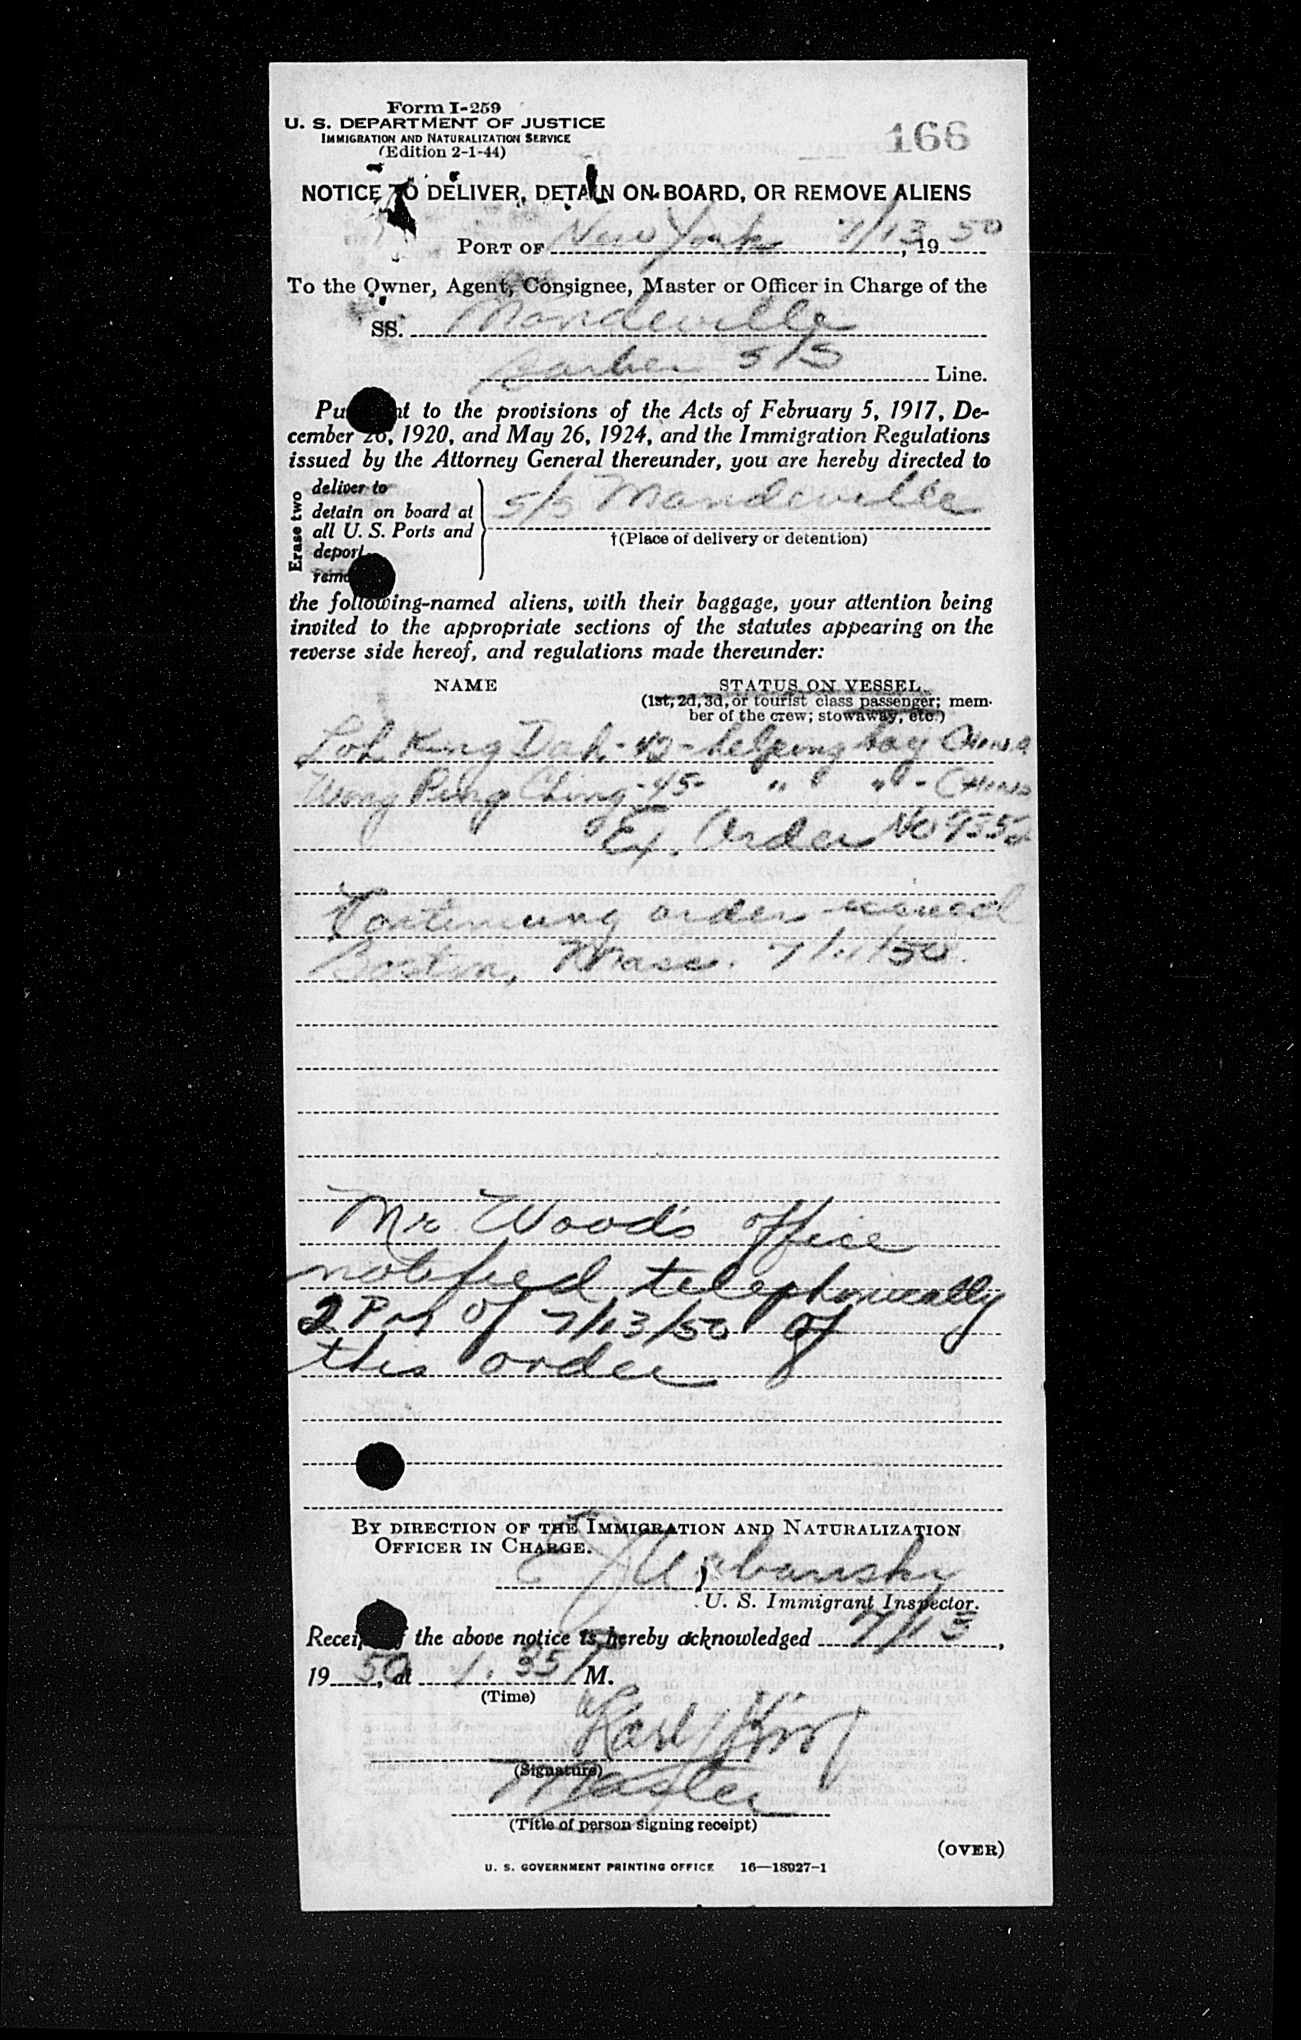 Form I-259
U. S. DEPARTMENT OF JUSTICE
IMMIGRATION AND NATURALIZATION SERVICE
(Edition 2-1-44)
166
NOTICE TO DELIVER, DETAIN ON BOARD, OR REMOVE ALIENS
PORT OF New York 7/13, 19 50
To the Owner, Agent, Consignee, Master or Officer in Charge of the
SS. Mandeville
Barber S/S Line.
Pu nt to the provisions of the Acts of February 5, 1917, De-
cember 26, 1920, and May 26, 1924, and the Immigration Regulations
issued by the Attorney General thereunder, you are hereby directed to
Erase two
deliver to
detain on board at
all U. S. Ports and
deport
remo
S/S Mandeville
†(Place of delivery or detention)
the following-named aliens, with their baggage, your attention being
invited to the appropriate sections of the statutes appearing on the
reverse side hereof, and regulations made thereunder:
NAME STATUS ON VESSEL
(1st, 2d, 3d, or tourist class passenger; mem-
ber of the crew; stowaway, etc.)
Loh King Dah - 42 - helping boy China
Wong Ping Ching - 45 - " " - China
Ex. Order No 9352
Continuing order issued
Boston, Mass. 7/11/50.
Mr Wood's office
notified telephonically
2 PM of 7/13/50 of
this order
BY DIRECTION OF THE IMMIGRATION AND NATURALIZATION
OFFICER IN CHARGE.
E J Urbansky
U. S. Immigrant Inspector.
Receipt of the above notice is hereby acknowledged 7/13,
19 50, at 1.35 P M.
(Time)
Karl
(Signature)
Master
(Title of person signing receipt)
(OVER)
U. S. GOVERNMENT PRINTING OFFICE 16—18927-1